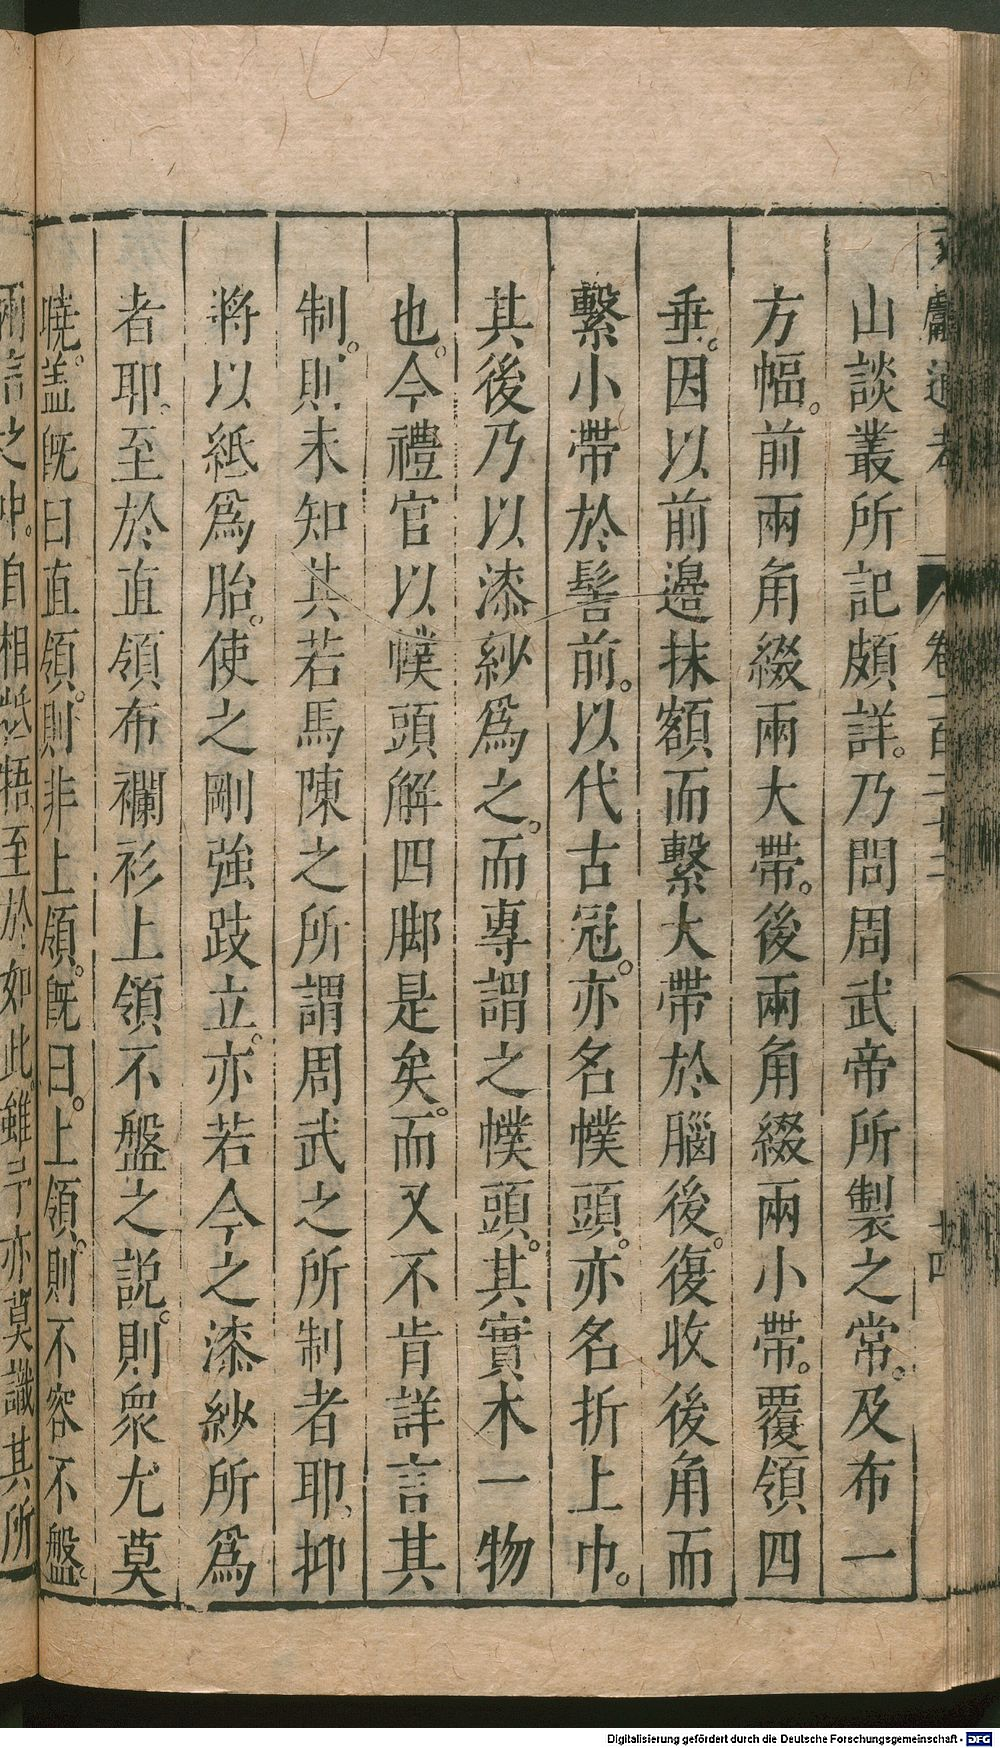 文獻通考 卷一百二十二 廿四
山談叢所記頗詳。乃問周武帝所製之常。及布一
方幅。前兩角綴兩大帶。後兩角綴兩小帶。覆領四
垂。因以前邉抹額而繫大帶於腦後。復收後角而
繫小帶於髻前。以代古冠。亦名幞頭。亦名折上巾。
其後乃以漆紗爲之。而專謂之幞頭。其實木一物
也。今禮官以幞頭解四脚是矣。而又不肯詳言其
制。則未知其若馬陳之所謂周武之所制者耶。抑
將以紙爲胎。使之剛強跂立。亦若今之漆紗所爲
者耶。至於直領布襴衫上領不盤之説。則衆尤莫
曉。盖旣曰直領。則非上領。旣曰。上領。則不容不盤。
兩言之中。自相牴牾至於如此。雖予亦莫識其所
Digitalisierung gefördert durch die Deutsche Forschungsgemeinschaft - DFG